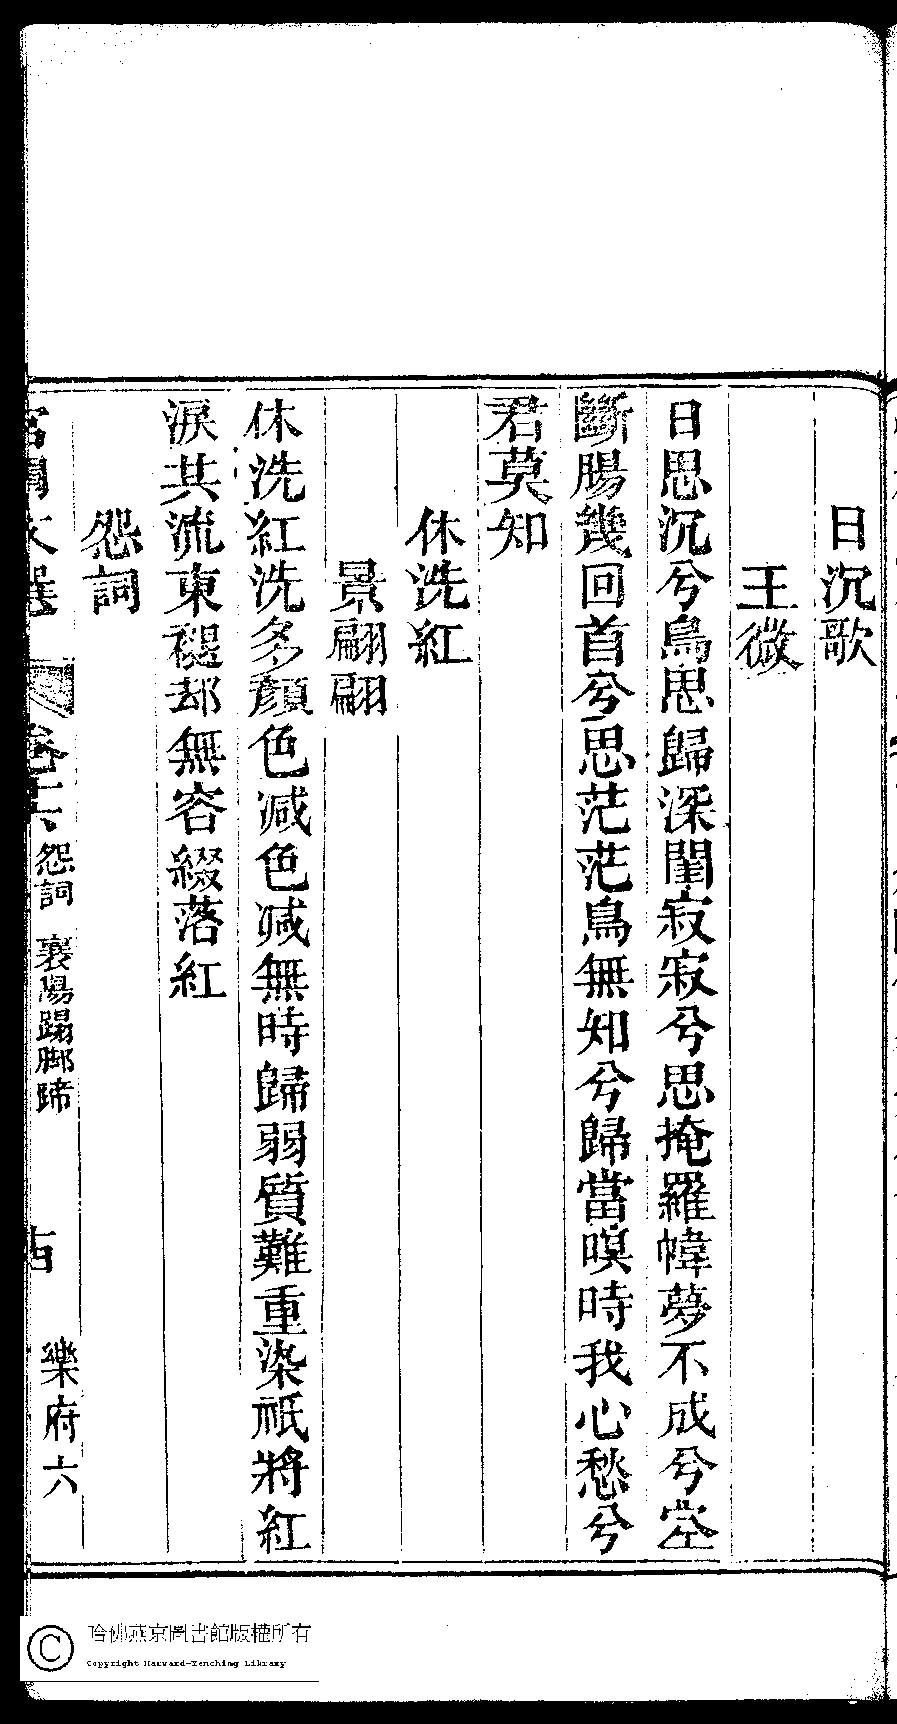 日沉歌
王微
日思沉兮鳥思歸深閨寂寂兮思掩羅幃夢不成兮空
斷腸幾回首兮思茫茫鳥無知兮歸當嗅時我心愁兮
君莫知
休洗紅
景翩翩
休洗紅洗多顏色減色減無時歸弱質難重染祇將紅
淚共流東褪却無容綴落紅
怨詞
文選 卷十六 怨詞 襄陽蹋脚蹄 古樂府六
哈佛燕京圖書館版權所有
Copyright Harvard-Yenching Library